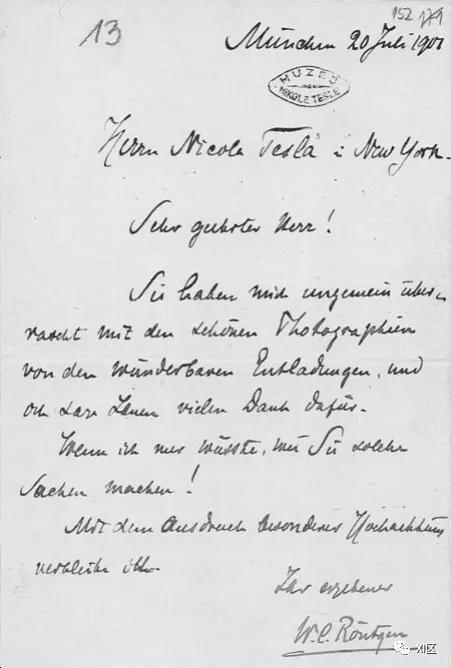 152 171
13
München 20 Juli 1901
MUZEJ
NIKOLE TESLE
Herrn Nicola Tesla i New York.
Sehr geehrter Herr!
Sie haben mich ungemein über-
rascht mit den schönen Photographien
von den wunderbaren Entladungen, und
ich sage Ihnen vielen Dank dafür.
Wenn ich nur wüsste, wie Sie solche
Sachen machen!
Mit dem Ausdruck besonderer Hochachtung
verbleibe ich
Ihr ergebener
W. C. Röntgen
X区